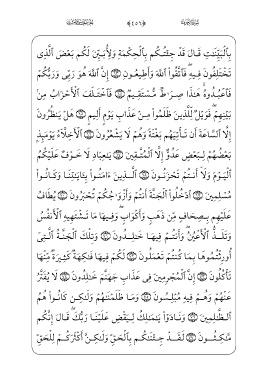 بِالْبَيِّنَاتِ قَالَ قَدْ جِئْتُكُم بِالْحِكْمَةِ وَلِأُبَيِّنَ لَكُم بَعْضَ الَّذِي
تَخْتَلِفُونَ فِيهِ فَاتَّقُوا اللَّهَ وَأَطِيعُونِ ﴿٦٣﴾ إِنَّ اللَّهَ هُوَ رَبِّي وَرَبُّكُمْ
فَاعْبُدُوهُ هَٰذَا صِرَاطٌ مُّسْتَقِيمٌ ﴿٦٤﴾ فَاخْتَلَفَ الْأَحْزَابُ مِن
بَيْنِهِمْ فَوَيْلٌ لِّلَّذِينَ ظَلَمُوا مِنْ عَذَابِ يَوْمٍ أَلِيمٍ ﴿٦٥﴾ هَلْ يَنظُرُونَ
إِلَّا السَّاعَةَ أَن تَأْتِيَهُم بَغْتَةً وَهُمْ لَا يَشْعُرُونَ ﴿٦٦﴾ الْأَخِلَّاءُ يَوْمَئِذٍ
بَعْضُهُمْ لِبَعْضٍ عَدُوٌّ إِلَّا الْمُتَّقِينَ ﴿٦٧﴾ يَٰعِبَادِ لَا خَوْفٌ عَلَيْكُمُ
الْيَوْمَ وَلَا أَنتُمْ تَحْزَنُونَ ﴿٦٨﴾ الَّذِينَ ءَامَنُوا بِـَٔايَٰتِنَا وَكَانُوا
مُسْلِمِينَ ﴿٦٩﴾ ادْخُلُوا الْجَنَّةَ أَنتُمْ وَأَزْوَٰجُكُمْ تُحْبَرُونَ ﴿٧٠﴾ يُطَافُ
عَلَيْهِم بِصِحَافٍ مِّن ذَهَبٍ وَأَكْوَابٍ وَفِيهَا مَا تَشْتَهِيهِ الْأَنفُسُ
وَتَلَذُّ الْأَعْيُنُ وَأَنتُمْ فِيهَا خَٰلِدُونَ ﴿٧١﴾ وَتِلْكَ الْجَنَّةُ الَّتِي
أُورِثْتُمُوهَا بِمَا كُنتُمْ تَعْمَلُونَ ﴿٧٢﴾ لَكُمْ فِيهَا فَٰكِهَةٌ كَثِيرَةٌ مِّنْهَا
تَأْكُلُونَ ﴿٧٣﴾ إِنَّ الْمُجْرِمِينَ فِي عَذَابِ جَهَنَّمَ خَٰلِدُونَ ﴿٧٤﴾ لَا يُفَتَّرُ
عَنْهُمْ وَهُمْ فِيهِ مُبْلِسُونَ ﴿٧٥﴾ وَمَا ظَلَمْنَٰهُمْ وَلَٰكِن كَانُوا هُمُ
الظَّٰلِمِينَ ﴿٧٦﴾ وَنَادَوْا يَٰمَٰلِكُ لِيَقْضِ عَلَيْنَا رَبُّكَ قَالَ إِنَّكُم
مَّٰكِثُونَ ﴿٧٧﴾ لَقَدْ جِئْنَٰكُم بِالْحَقِّ وَلَٰكِنَّ أَكْثَرَكُمْ لِلْحَقِّ